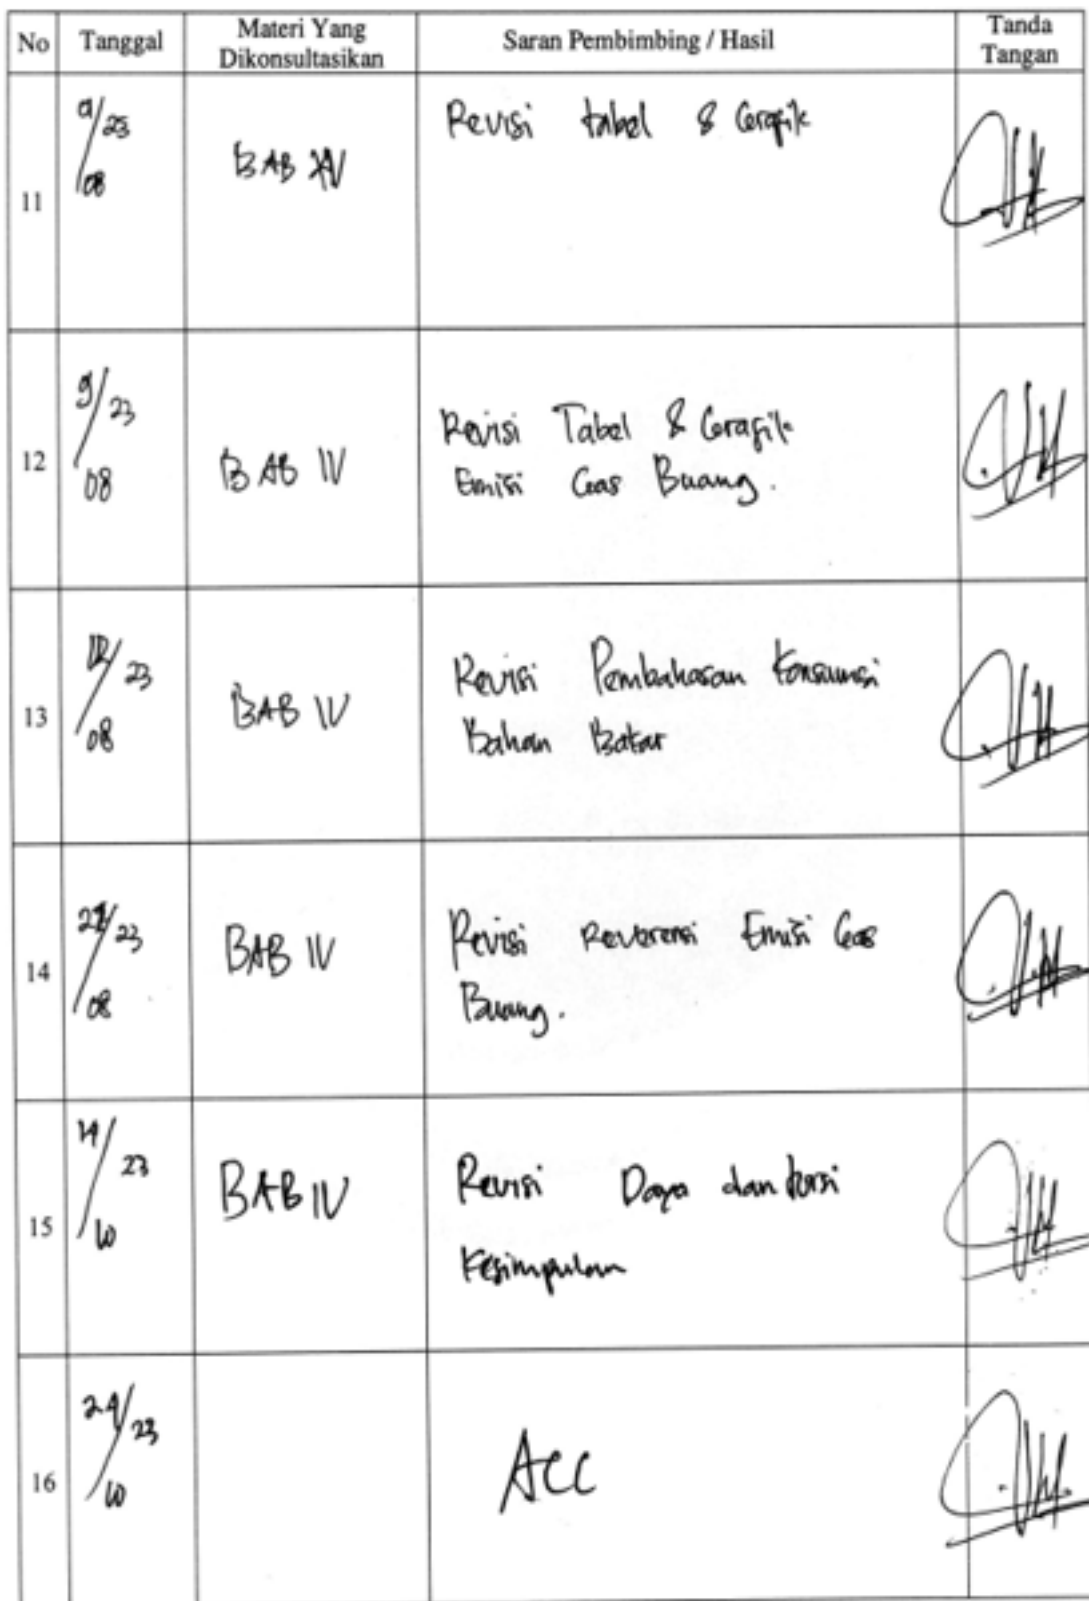 No Tanggal Materi Yang Dikonsultasikan Saran Pembimbing / Hasil Tanda Tangan
11 9/08 23 BAB IV Revisi tabel & Grafik
12 9/08 23 BAB IV Revisi Tabel & Grafik
Emisi Gas Buang.
13 12/08 23 BAB IV Revisi Pembahasan Konsumsi
Bahan Bakar
14 /08 23 BAB IV Revisi Reverensi Emisi Gas
Buang.
15 14/10 23 BAB IV Revisi Daya dan torsi
Kesimpulan
16 24/10 23 ACC